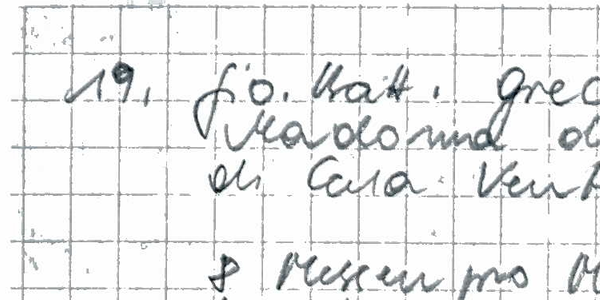 19. Gio. Batt. Grec
Madonna d
di Casa Vent
8 Messen pro M